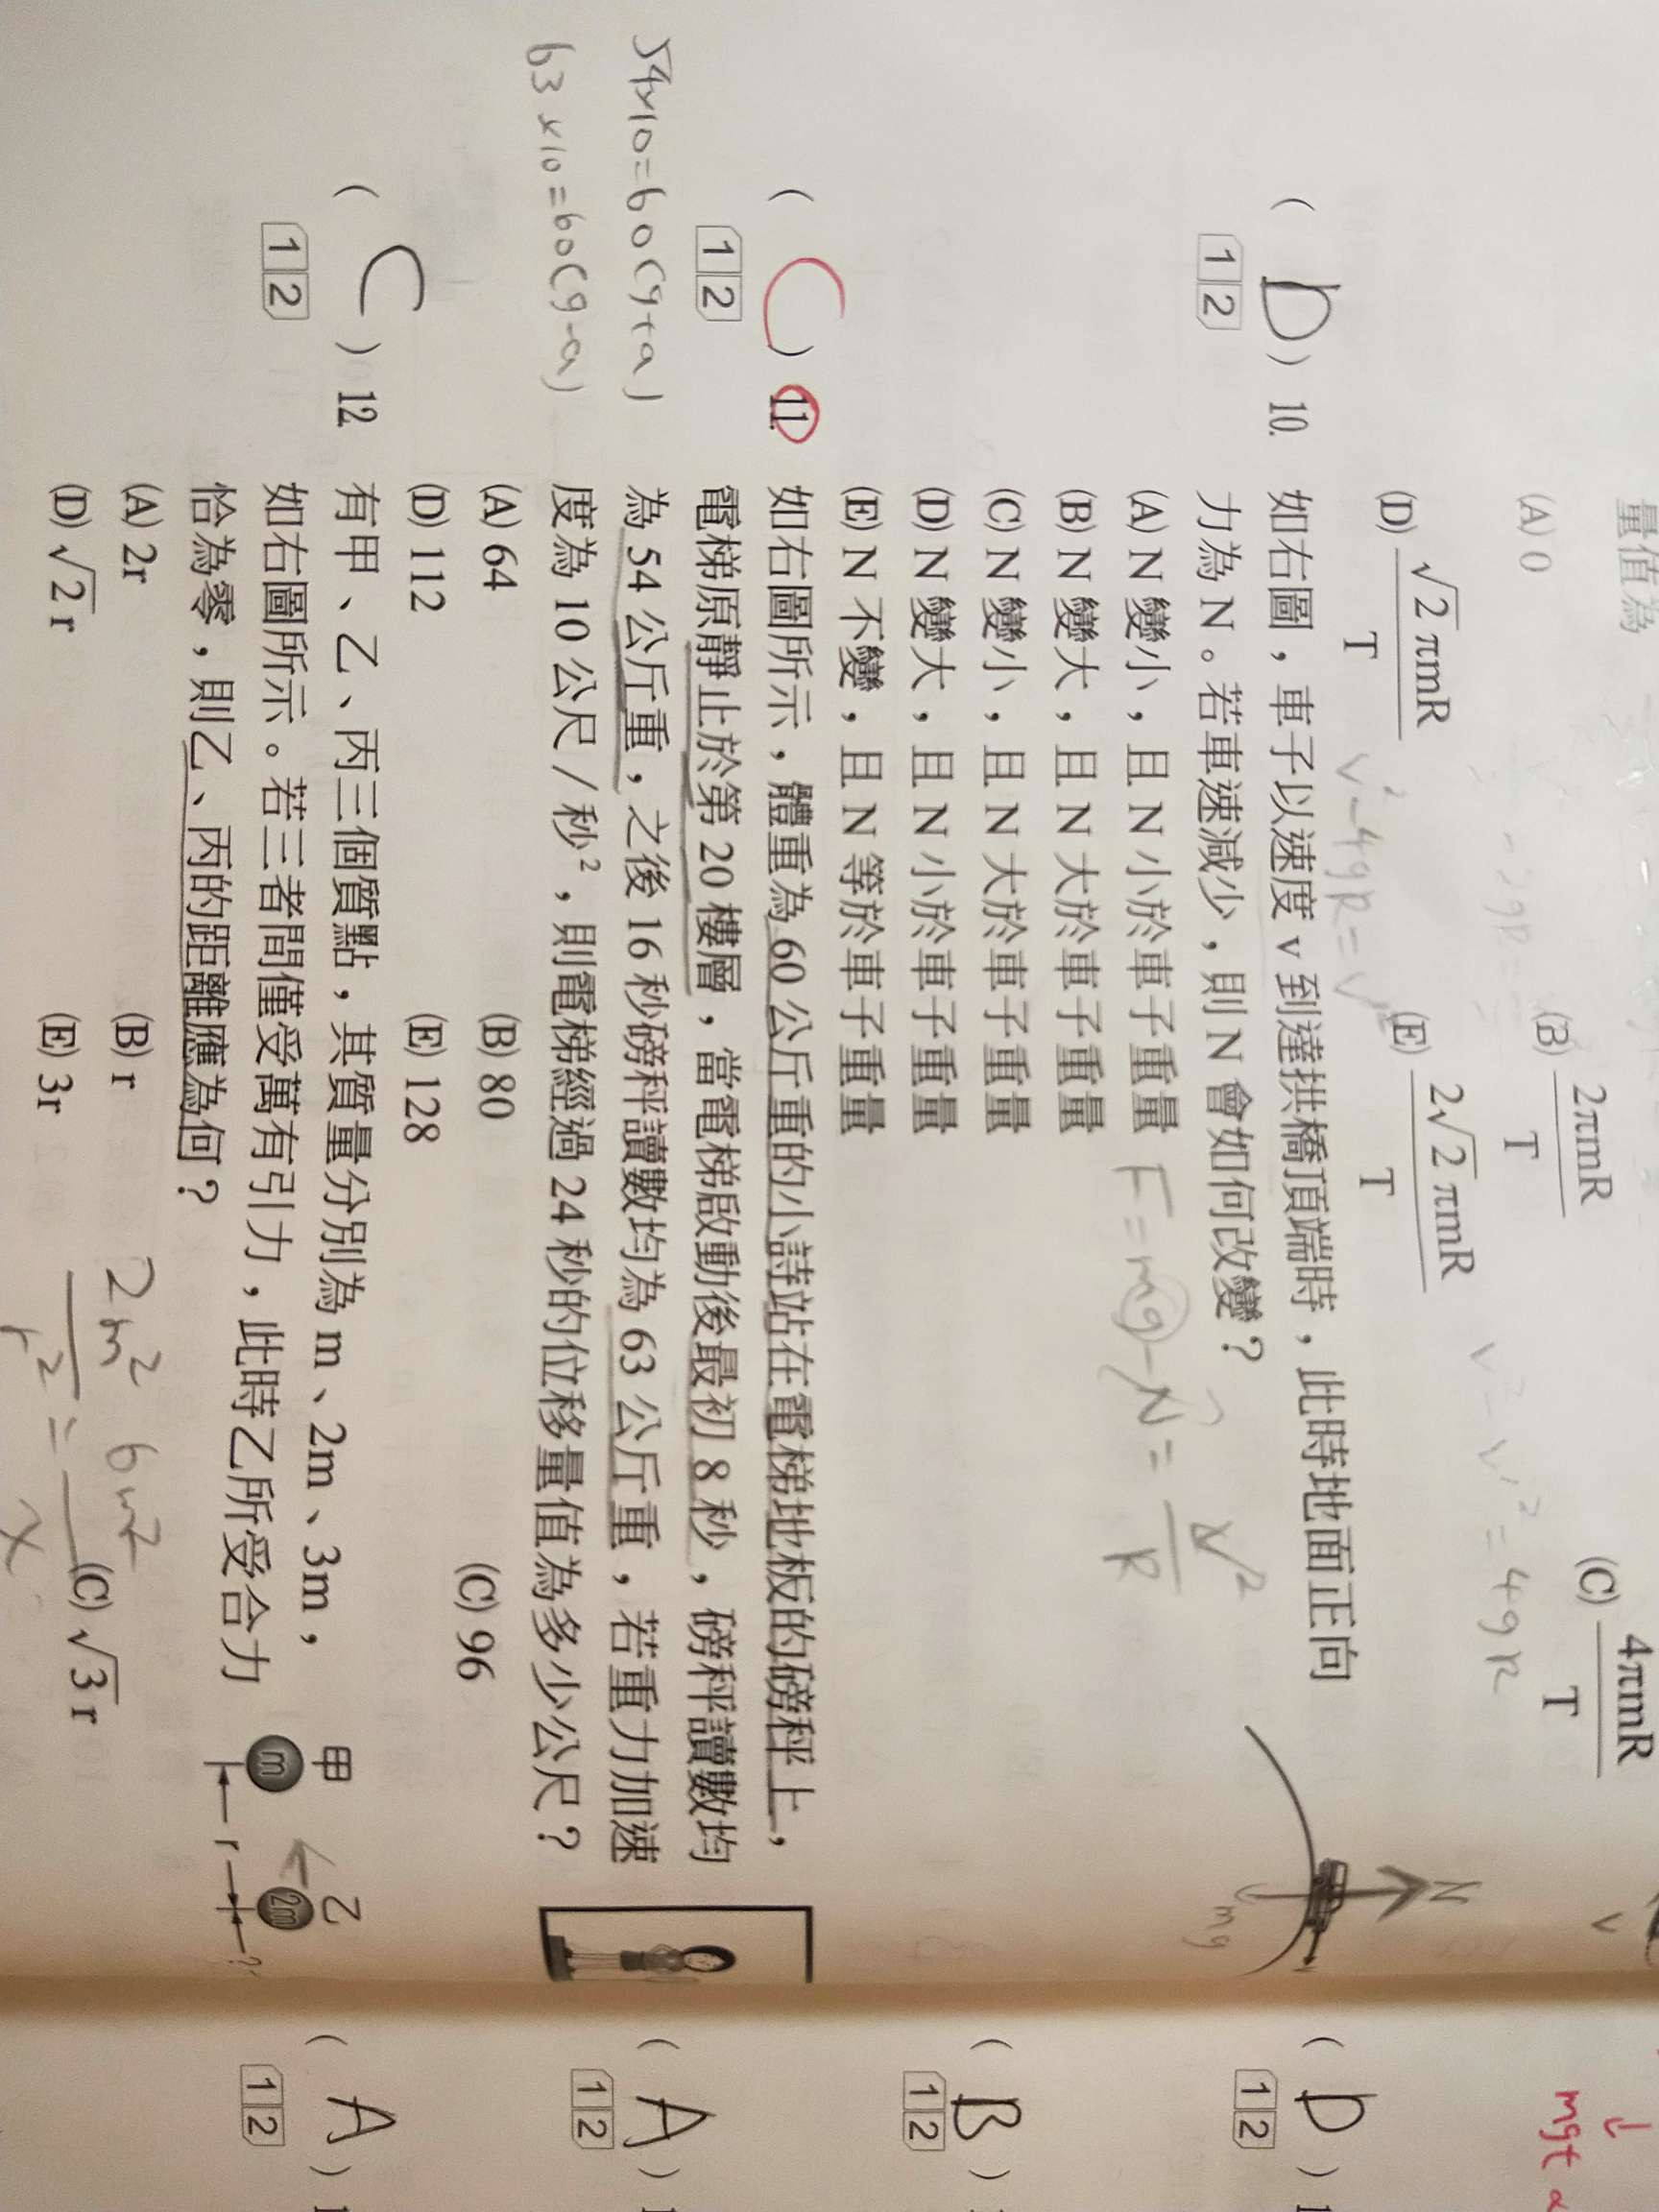 量值為
(A) 0 (B) 2πmR/T (C) 4πmR/T
(D) √2πmR/T (E) 2√2πmR/T
v²-4gR=v²
v²-v²=4gR
( D ) 10. 如右圖，車子以速度 v 到達拱橋頂端時，此時地面正向
1 2 力為 N。若車速減少，則 N 會如何改變？
(A) N 變小，且 N 小於車子重量
(B) N 變大，且 N 大於車子重量
(C) N 變小，且 N 大於車子重量
(D) N 變大，且 N 小於車子重量
(E) N 不變，且 N 等於車子重量
F=mg-N=v²/R
N
mg
v
( C ) 11. 如右圖所示，體重為 60 公斤重的小詩站在電梯地板的磅秤上，
1 2 電梯原靜止於第 20 樓層，當電梯啟動後最初 8 秒，磅秤讀數均
為 54 公斤重，之後 16 秒磅秤讀數均為 63 公斤重，若重力加速
度為 10 公尺／秒²，則電梯經過 24 秒的位移量值為多少公尺？
54×10=60(g+a)
63×10=60(g-a)
(A) 64 (B) 80 (C) 96
(D) 112 (E) 128
( C ) 12. 有甲、乙、丙三個質點，其質量分別為 m、2m、3m，
1 2 如右圖所示。若三者間僅受萬有引力，此時乙所受合力
恰為零，則乙、丙的距離應為何？
甲 乙
m 2m
r ?
(A) 2r (B) r (C) √3 r
(D) √2 r (E) 3r
2m²/r² = 6m²/x
( D )
1 2
( B )
1 2
( A )
1 2
( A )
1 2
mgt